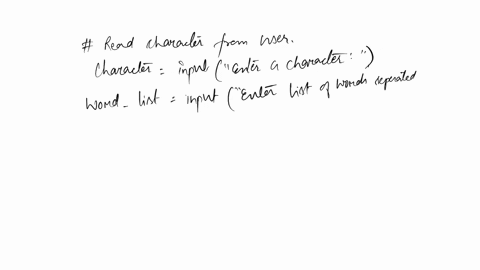 # Read character from user.
character = input ("Enter a character: ")
word_list = input ("Enter list of words seperated